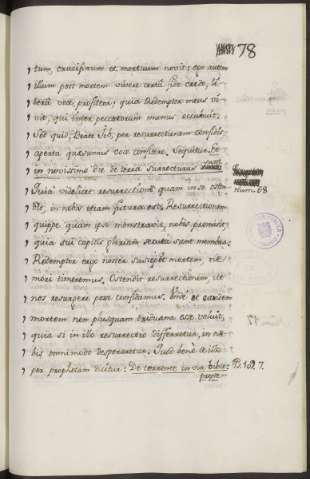 78
tum, crucifixum et mortuum novit; ego autem
illum post mortem vivere certâ fide credo, li-
berâ voce profiteor; quia Redemptor meus vi-
vit, qui inter peccatorum manus occubuit.
Sed quid, Beate Job, per resurrectionem
aperta quæsumus voce confitere. Sequitur: Et
in novissimo die de terra surrecturus sum.
Scilicet videlicet resurrectionem quam in se osten-
dit, in nobis etiam factura est. Resurrectionem
quippe quam in se monstravit, nobis promisit,
quia sui capitis gloriam secuta sunt membra.
Redemptor ergo noster suscepit mortem, ne
mori timeremus. Ostendit resurrectionem, ut
nos resurgere posse confidamus. Unde et eandem
mortem non plusquam triduanam esse voluit,
quia si in illo resurrectio differretur, in no-
bis omnimodo desperaretur. Quod bene de illo
per prophetam dicitur: De torrente in via bibet
num. 68
Ps. 109. 7.